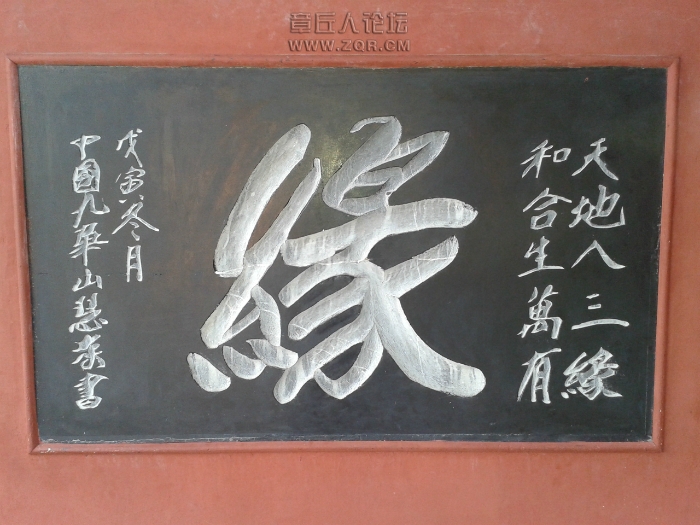 章丘人论坛
WWW.ZQR.CM
天地人三緣
和合生萬有
緣
戊寅冬月
中國九華山慧崇書